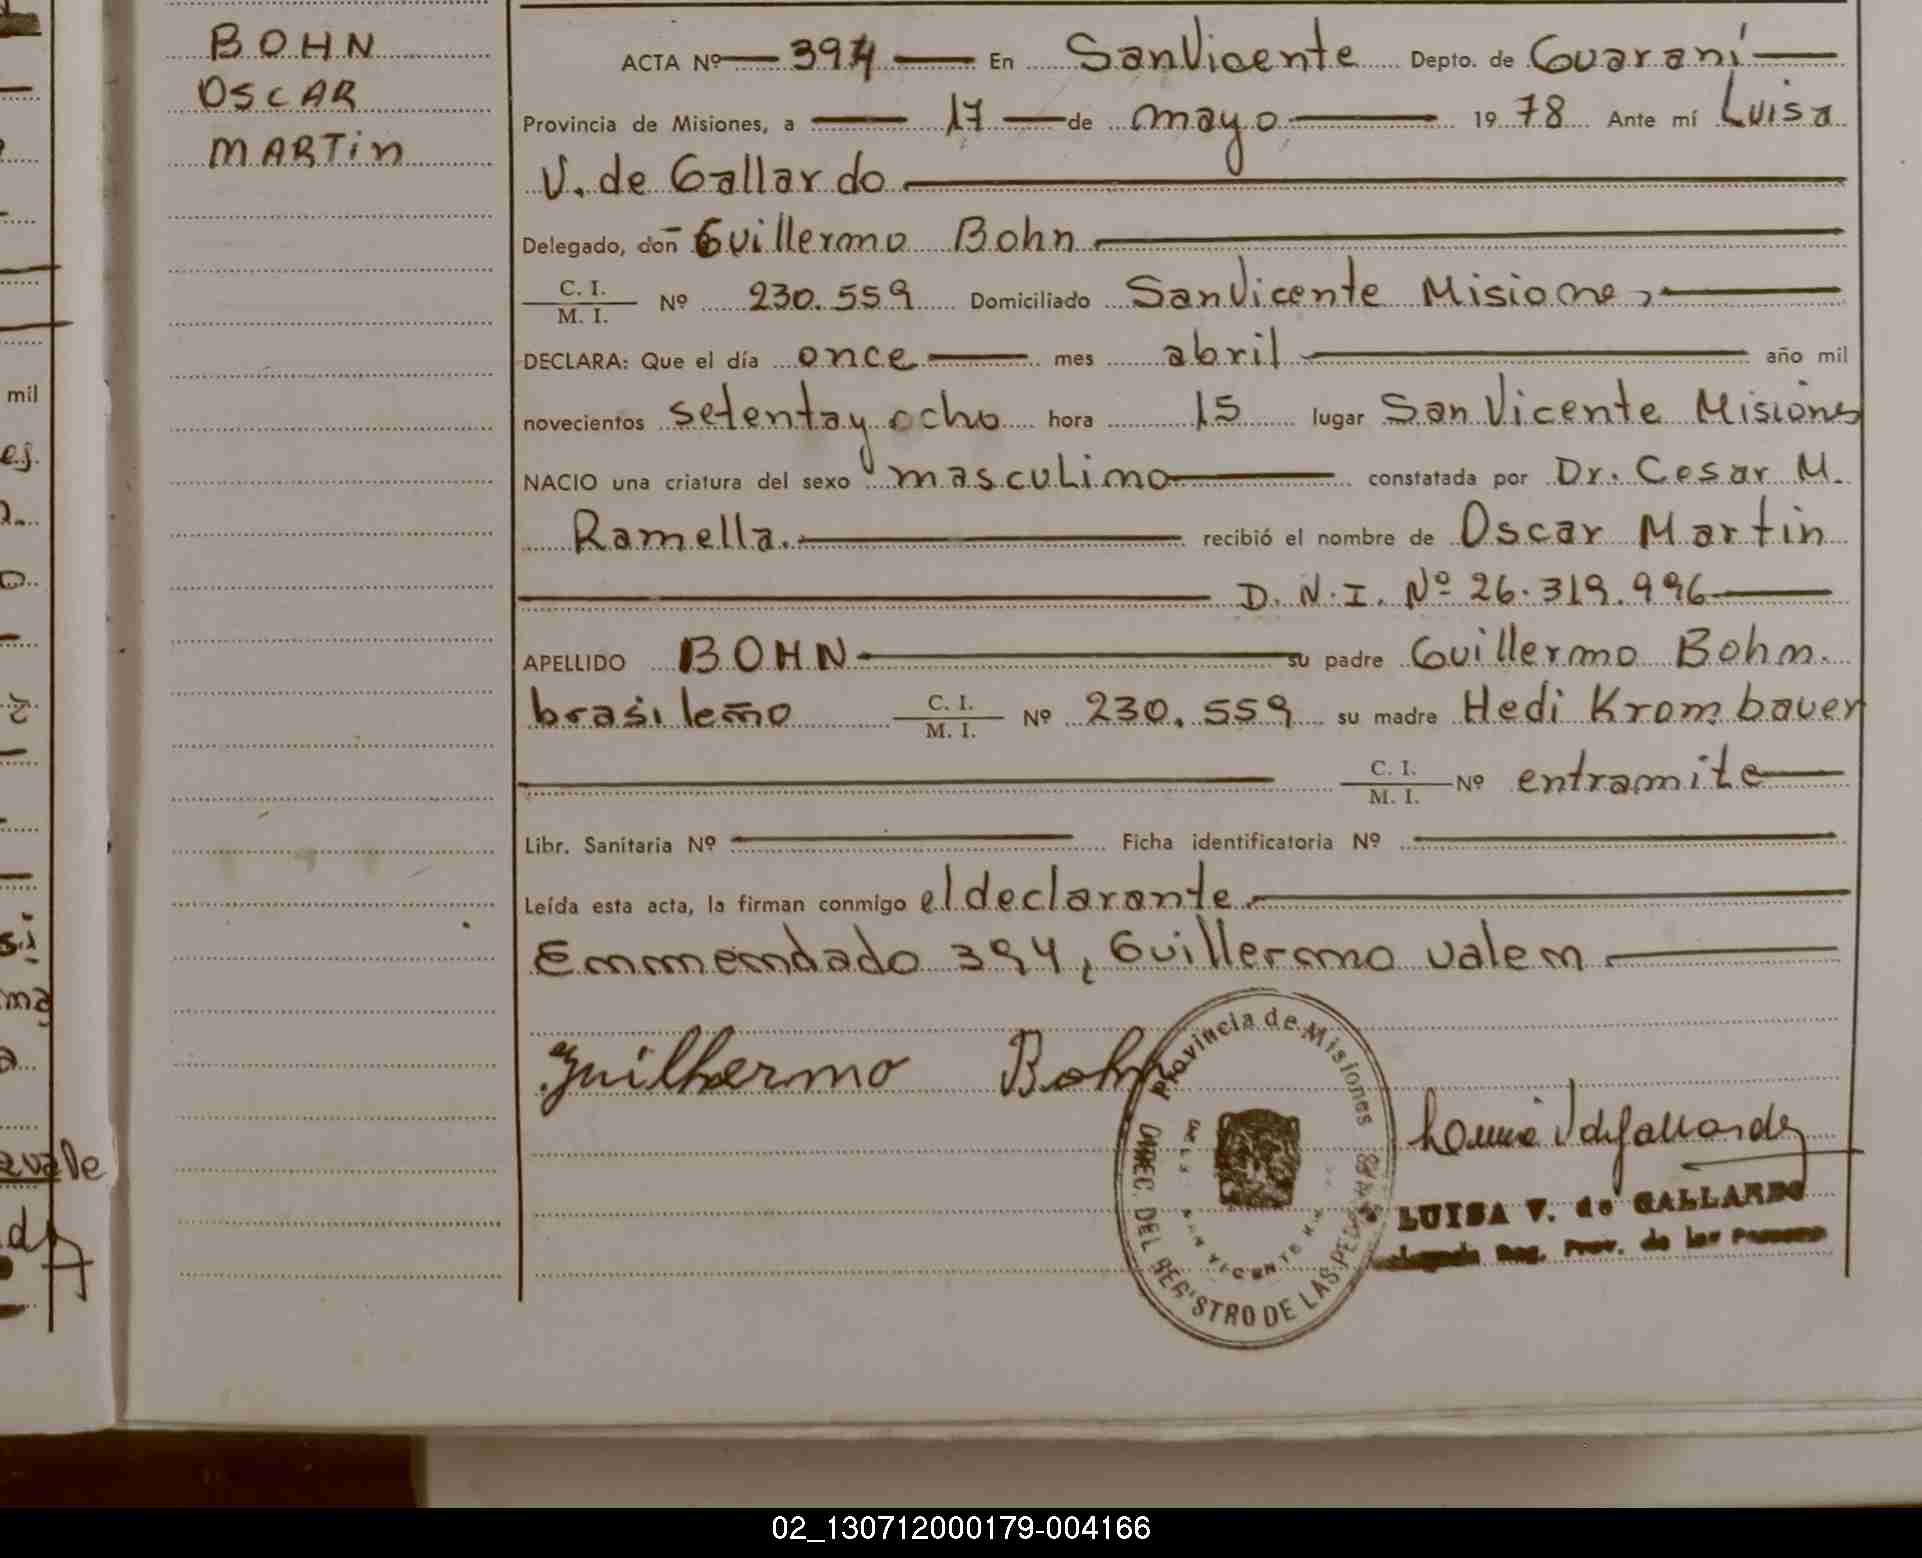 BOHN
OSCAR
MARTin
ACTA Nº 394 En San Vicente Depto. de Guaraní
Provincia de Misiones, a 17 de mayo 1978 Ante mí Luisa
V. de Gallardo
Delegado, don Guillermo Bohn
C. I. / M. I. Nº 230.559 Domiciliado San Vicente Misiones
DECLARA: Que el día once mes abril año mil
novecientos setenta y ocho hora 15 lugar San Vicente Misiones
NACIO una criatura del sexo masculino constatada por Dr. Cesar M.
Ramella. recibió el nombre de Oscar Martin
D. N. I. Nº 26.319.996
APELLIDO BOHN su padre Guillermo Bohn.
brasileño C. I. / M. I. Nº 230.559 su madre Hedi Krombauer
C. I. / M. I. Nº entramite
Libr. Sanitaria Nº Ficha identificatoria Nº
Leída esta acta, la firman conmigo el declarante
Enmendado 394, Guillermo valen
Guilhermo Bohn
Provincia de Misiones
DIREC. DEL REGISTRO DE LAS PERSONAS
SAN VICENTE
LUISA V. de GALLARDO
Reg. Prov. de las Personas
mil
es.
si
ma
avale
02_130712000179-004166